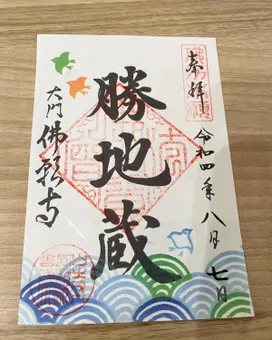 奉拝
令和四年八月七日
勝地蔵
大門佛願寺